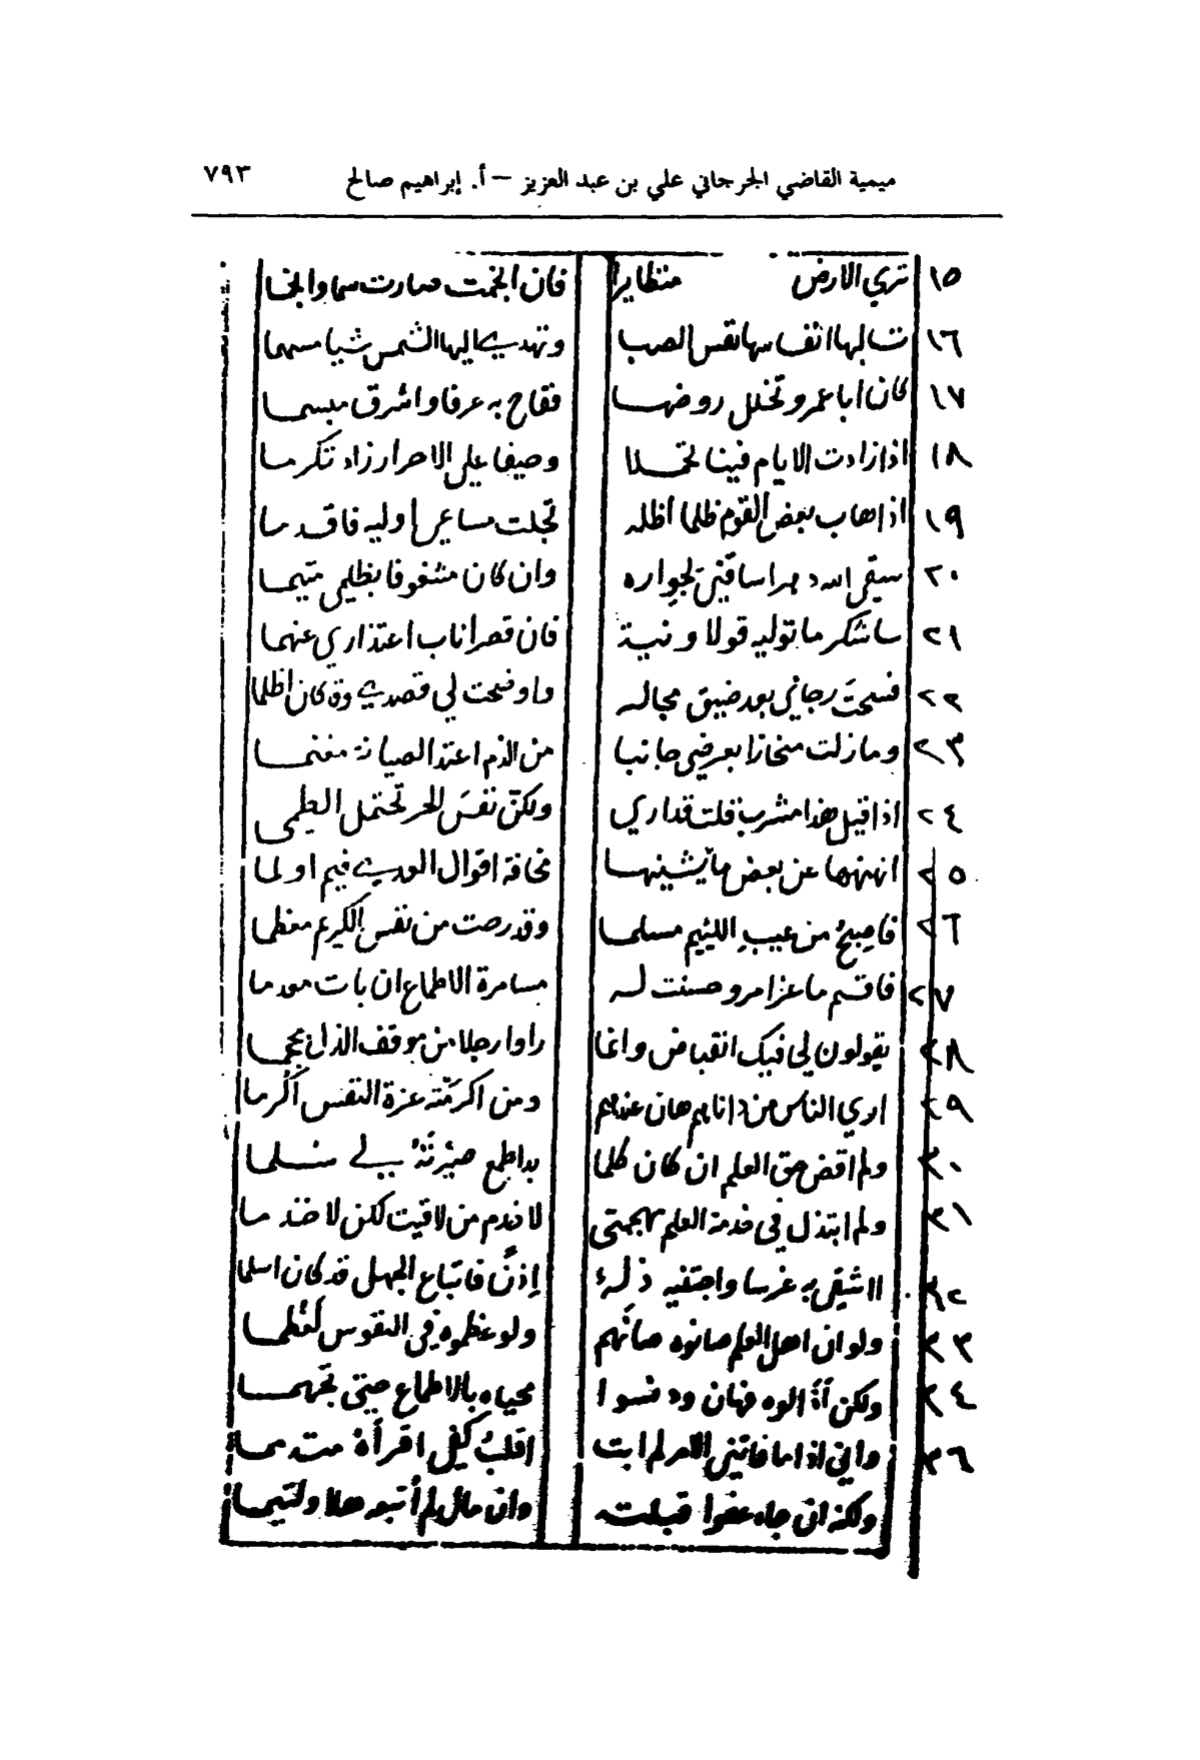 ميمية القاضي الجرجاني علي بن عبد العزيز – أ. إبراهيم صالح ٧٩٣
١٥ تري الارض منظايرا فان انجمت صارت سما وانجما
١٦ انفاسها نفس الصبا وتهدي اليها الشمس شيا مسهما
١٧ كان ابا عمرو تخلل روضها ففاح به عرفا واشرق مبسما
١٨ اذا زادت الايام فينا تحملا وحيفا علي الاحرار زاد تكرما
١٩ اذا هاب بعض القوم ظلما اظله تجلت مساعي اوليه فاقدما
٢٠ سقي الله دهرا ساقني لجواره وان كان مشغوفا بظلمي متيما
٢١ ساشكر ما توليه قولا ونية فان قصرا ناب اعتذاري عنهما
٢٢ فسحت رجائي بعد ضيق مجاله واوضحت لي قصدي وقد كان اظلما
٢٣ وما زلت منحازا بعرضي جانبا من الذم اعتد الصيانة مغنما
٢٤ اذا قيل هذا مشرب قلت قد اري ولكن نفس الحر تحتمل الظمي
٢٥ انهنهها عن بعض ما يشينها مخافة اقوال العدي فيم او لما
٢٦ فاصبح من عيب اللئيم مسلما وقد رحت من نفس الكريم معظما
٢٧ فاقسم ما عز امرو حسنت له مسامرة الاطماع ان بات معدما
٢٨ يقولون لي فيك انقباض وانما راوا رجلا من موقف الذل محجما
٢٩ اري الناس من داناهم هان عندهم ومن اكرمته عزة النفس اكرما
٣٠ ولم اقض حق العلم ان كان كلما بدا طمع صيرته لي سلما
٣١ ولم ابتذل في خدمة العلم مهجتي لاخدم من لاقيت لكن لاخدما
٣٢ ااشقي به غرسا واجتنيه ذلة إذن فاتباع الجهل قد كان اسلما
٣٣ ولو ان اهل العلم صانوه صانهم ولو عظموه في النفوس لعظما
٣٤ ولكن أذالوه فهان ودنسوا محياه بالاطماع حتى تجهما
٣٦ واني اذا ما فاتني الامر لم ابت اقلب كفي اثره متندما
ولكنه ان جاء عفوا قبلته وان مال لم أتبعه هلا وليتما